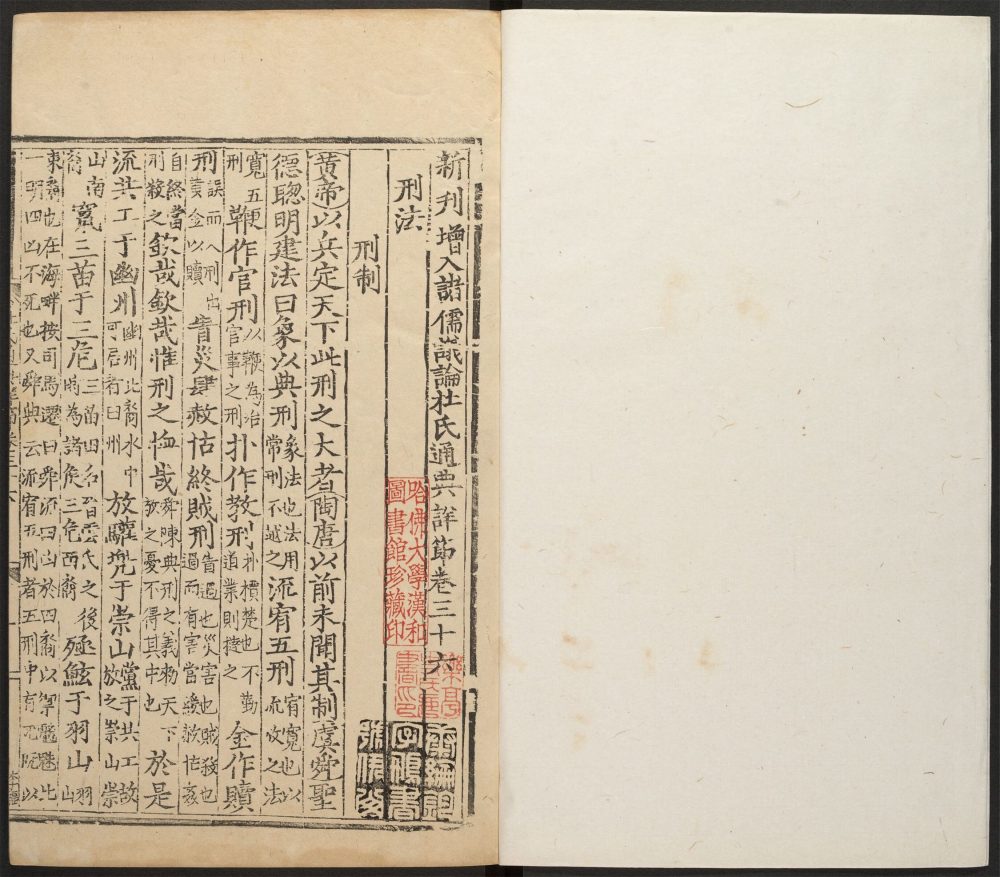 新刋增入諸儒議論杜氏通典詳節卷三十六
刑法
刑制
黄帝以兵定天下此刑之大者陶唐以前未聞其制虞舜聖
德聰明建法曰象以典刑象法也法用常刑不越之流宥五刑宥寬也以流放之法
寬五刑鞭作官刑以鞭爲治官事之刑扑作教刑扑榎楚也不勤道業則撻之金作贖
刑誤而入刑出金以贖眚災肆赦怙終賊刑眚過也災害也賊殺也過而有害當緩赦怙姦
自終當刑殺之欽哉欽哉惟刑之恤哉舜陳典刑之義勑天下敬之憂不得其中也於是
流共工于幽州幽州北裔水中可居者曰州放驩兠于崇山黨于共工故放之崇山崇
山南裔竄三苗于三危三苗囯名縉雲氏之後爲諸侯三危西裔殛鯀于羽山羽山
東裔也在海畔按司馬遷曰舜流四凶於四裔以禦魑魅此
一明四凶不死也又舜典云流宥五刑者五刑中有
哈佛大學漢和
圖書館珍藏印